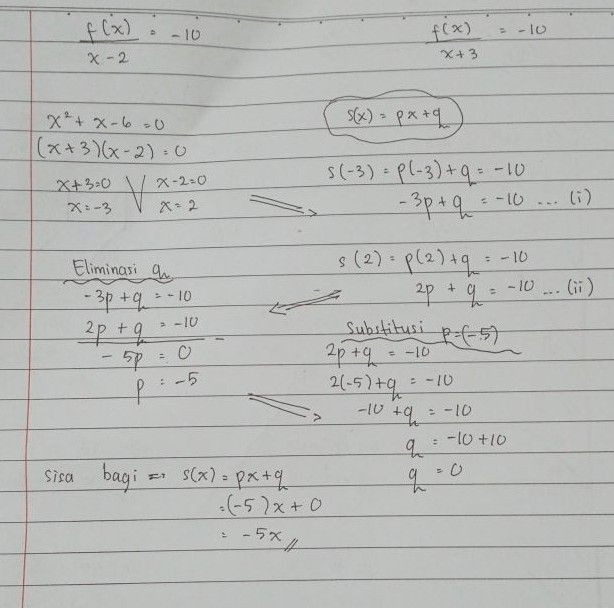 f(x)/(x-2) = -10
f(x)/(x+3) = -10
x² + x - 6 = 0
(x+3)(x-2) = 0
x+3=0 ∨ x-2=0
x=-3 x=2
s(x) = px+q
s(-3) = p(-3)+q = -10
-3p+q = -10 ... (i)
s(2) = p(2)+q = -10
2p + q = -10 ... (ii)
Eliminasi q
-3p+q = -10
2p + q = -10
-
- 5p = 0
p = -5
Substitusi p=(-5)
2p+q = -10
2(-5)+q = -10
-10 +q = -10
q = -10+10
q = 0
sisa bagi ⇒ s(x) = px+q
=(-5)x + 0
= -5x //